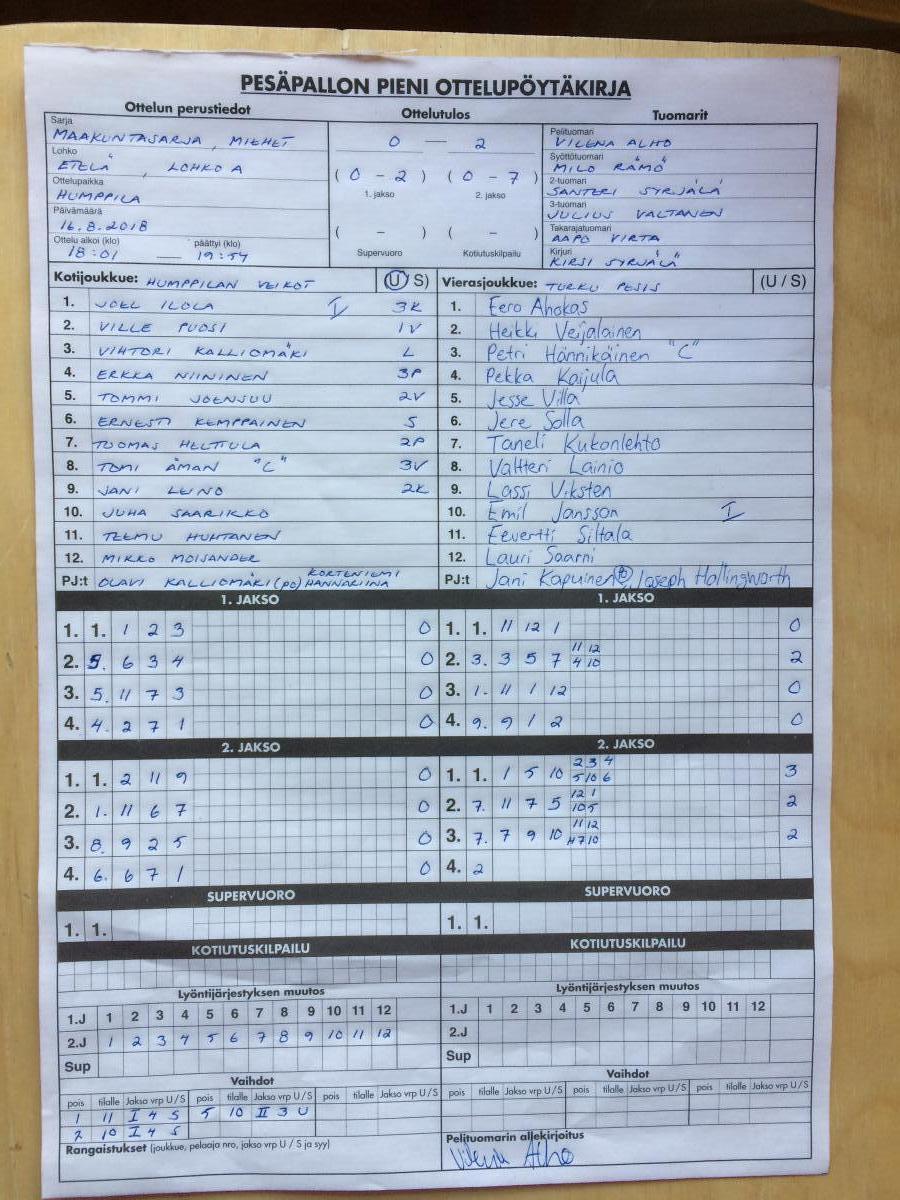 PESÄPALLON PIENI OTTELUPÖYTÄKIRJA
Ottelun perustiedot
Ottelutulos
Tuomarit
Sarja
MAAKUNTASARJA, MIEHET
Lohko
ETELÄ, LOHKO A
Ottelupaikka
HUMPPILA
Päivämäärä
16.8.2018
Ottelu alkoi (klo) päättyi (klo)
18:01 — 19:54
0 — 2
(0 - 2) (0 - 7)
1. jakso 2. jakso
( - ) ( - )
Supervuoro Kotiutuskilpailu
Pelituomari
VILENA ALHO
Syöttötuomari
MILO RÄMÖ
2-tuomari
SANTERI SYRJÄLÄ
3-tuomari
JULIUS VALTANEN
Takarajatuomari
AAPO VIRTA
Kirjuri
KIRSI SYRJÄLÄ
Kotijoukkue: HUMPPILAN VEIKOT (U/S)
1. JOEL ILOLA I 3K
2. VILLE PUOSI 1V
3. VIHTORI KALLIOMÄKI L
4. ERKKA NIININEN 3P
5. TOMMI JOENSUU 2V
6. ERNESTI KEMPPAINEN S
7. TUOMAS HELTTULA 2P
8. TOMI ÅMAN "C" 3V
9. JANI LEINO 2K
10. JUHA SAARIKKO
11. TEEMU HUHTANEN
12. MIKKO MOISANDER
PJ:t OLAVI KALLIOMÄKI (PO) KORTENIEMI HANNARIINA
Vierasjoukkue: TURKU PESIS (U / S)
1. Eero Ahokas
2. Heikki Veijalainen
3. Petri Hännikäinen "C"
4. Pekka Kaijula
5. Jesse Villa
6. Jere Solla
7. Taneli Kukonlehto
8. Valtteri Lainio
9. Lassi Viksten
10. Emil Jansson I
11. Eevertti Siltala
12. Lauri Saarni
PJ:t Jani Kapuinen Joseph Hollingworth
1. JAKSO
1. 1. 1 2 3 0
2. 5. 6 3 4 0
3. 5. 11 7 3 0
4. 4. 2 7 1 0
2. JAKSO
1. 1. 2 11 9 0
2. 1. 11 6 7 0
3. 8. 9 2 5 0
4. 6. 6 7 1 0
SUPERVUORO
1. 1.
KOTIUTUSKILPAILU
1. JAKSO
1. 1. 11 12 1 0
2. 3. 3 5 7 11 12 2
4 10
3. 1. 11 1 12 0
4. 9. 9 1 2 0
2. JAKSO
1. 1. 1 5 10 2 3 4 3
5 10 6
2. 7. 11 7 5 12 1 2
10 5
3. 7. 7 9 10 11 12 2
7 10
4. 2
SUPERVUORO
1. 1.
KOTIUTUSKILPAILU
Lyöntijärjestyksen muutos
1.J 1 2 3 4 5 6 7 8 9 10 11 12
2.J 1 2 3 4 5 6 7 8 9 10 11 12
Sup
Lyöntijärjestyksen muutos
1.J 1 2 3 4 5 6 7 8 9 10 11 12
2.J
Sup
Vaihdot
pois tilalle Jakso vrp U/S pois tilalle Jakso vrp U/S pois tilalle Jakso vrp U/S
1 11 I 4 S 5 10 II 3 U
2 10 I 4 S
Rangaistukset (joukkue, pelaaja nro, jakso vrp U / S ja syy)
Vaihdot
pois tilalle Jakso vrp U/S pois tilalle Jakso vrp U/S pois tilalle Jakso vrp U/S
Pelituomarin allekirjoitus
Vilena Alho